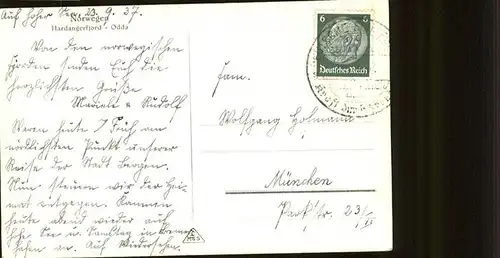 Auf hoher See, 23.9.37.
Norwegen
Hardangerfjord - Odda
Von den norwegischen
Fjorden senden Euch die
herzlichsten Grüße
Mariele & Rudolf
Waren heute 7 Früh am
nördlichsten Punkt unserer
Reise der Stadt Bergen.
Nun steuern wir der Hei-
mat entgegen. Kommen
heute abend wieder auf
hohe See u. Samstag in Bremer-
hafen an. Auf Wiedersehen.
6 6
Deutsches Reich
Kraft durch
Fam.
Wolfgang Hofmann
München
Parkstr. 23/II